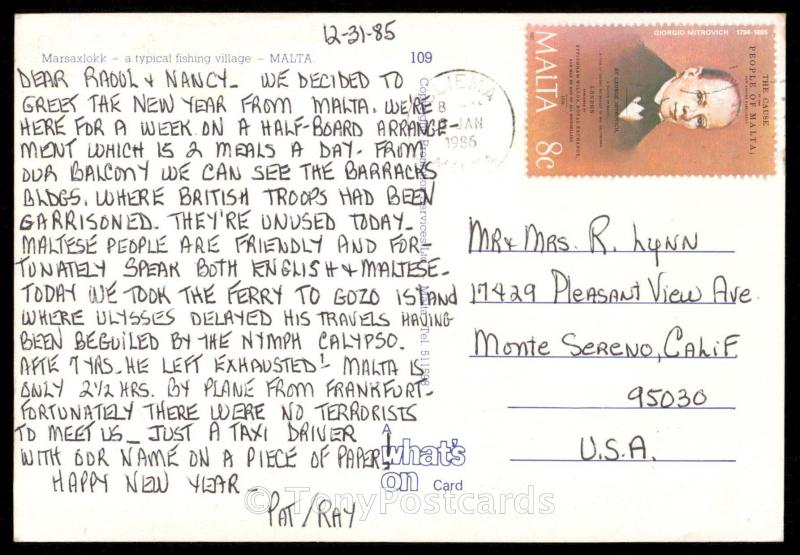 12-31-85
Marsaxlokk – a typical fishing village – MALTA.
109
DEAR RAOUL & NANCY – WE DECIDED TO
GREET THE NEW YEAR FROM MALTA. WE'RE
HERE FOR A WEEK ON A HALF-BOARD ARRANGE-
MENT WHICH IS 2 MEALS A DAY. FROM
OUR BALCONY WE CAN SEE THE BARRACKS
BLDGS. WHERE BRITISH TROOPS HAD BEEN
GARRISONED. THEY'RE UNUSED TODAY.
MALTESE PEOPLE ARE FRIENDLY AND FOR-
TUNATELY SPEAK BOTH ENGLISH & MALTESE.
TODAY WE TOOK THE FERRY TO GOZO ISLAND
WHERE ULYSSES DELAYED HIS TRAVELS HAVING
BEEN BEGUILED BY THE NYMPH CALYPSO.
AFTE 7 YRS. HE LEFT EXHAUSTED! MALTA IS
ONLY 2 1/2 HRS. BY PLANE FROM FRANKFURT.
FORTUNATELY THERE WERE NO TERRORISTS
TO MEET US – JUST A TAXI DRIVER
WITH OUR NAME ON A PIECE OF PAPER!
HAPPY NEW YEAR –
PAT/RAY
A
what's
on Card
SLIEMA
8
JAN
1986
GIORGIO MITROVICH 1794-1885
MALTA 8c
THE CAUSE
OF THE
PEOPLE OF MALTA;
BY GEORGE MITROVICH,
LONDON
MR & MRS. R. LYNN
17429 PLEASANT VIEW AVE.
MONTE SERENO, CALIF
95030
U.S.A.
© TonyPostcards